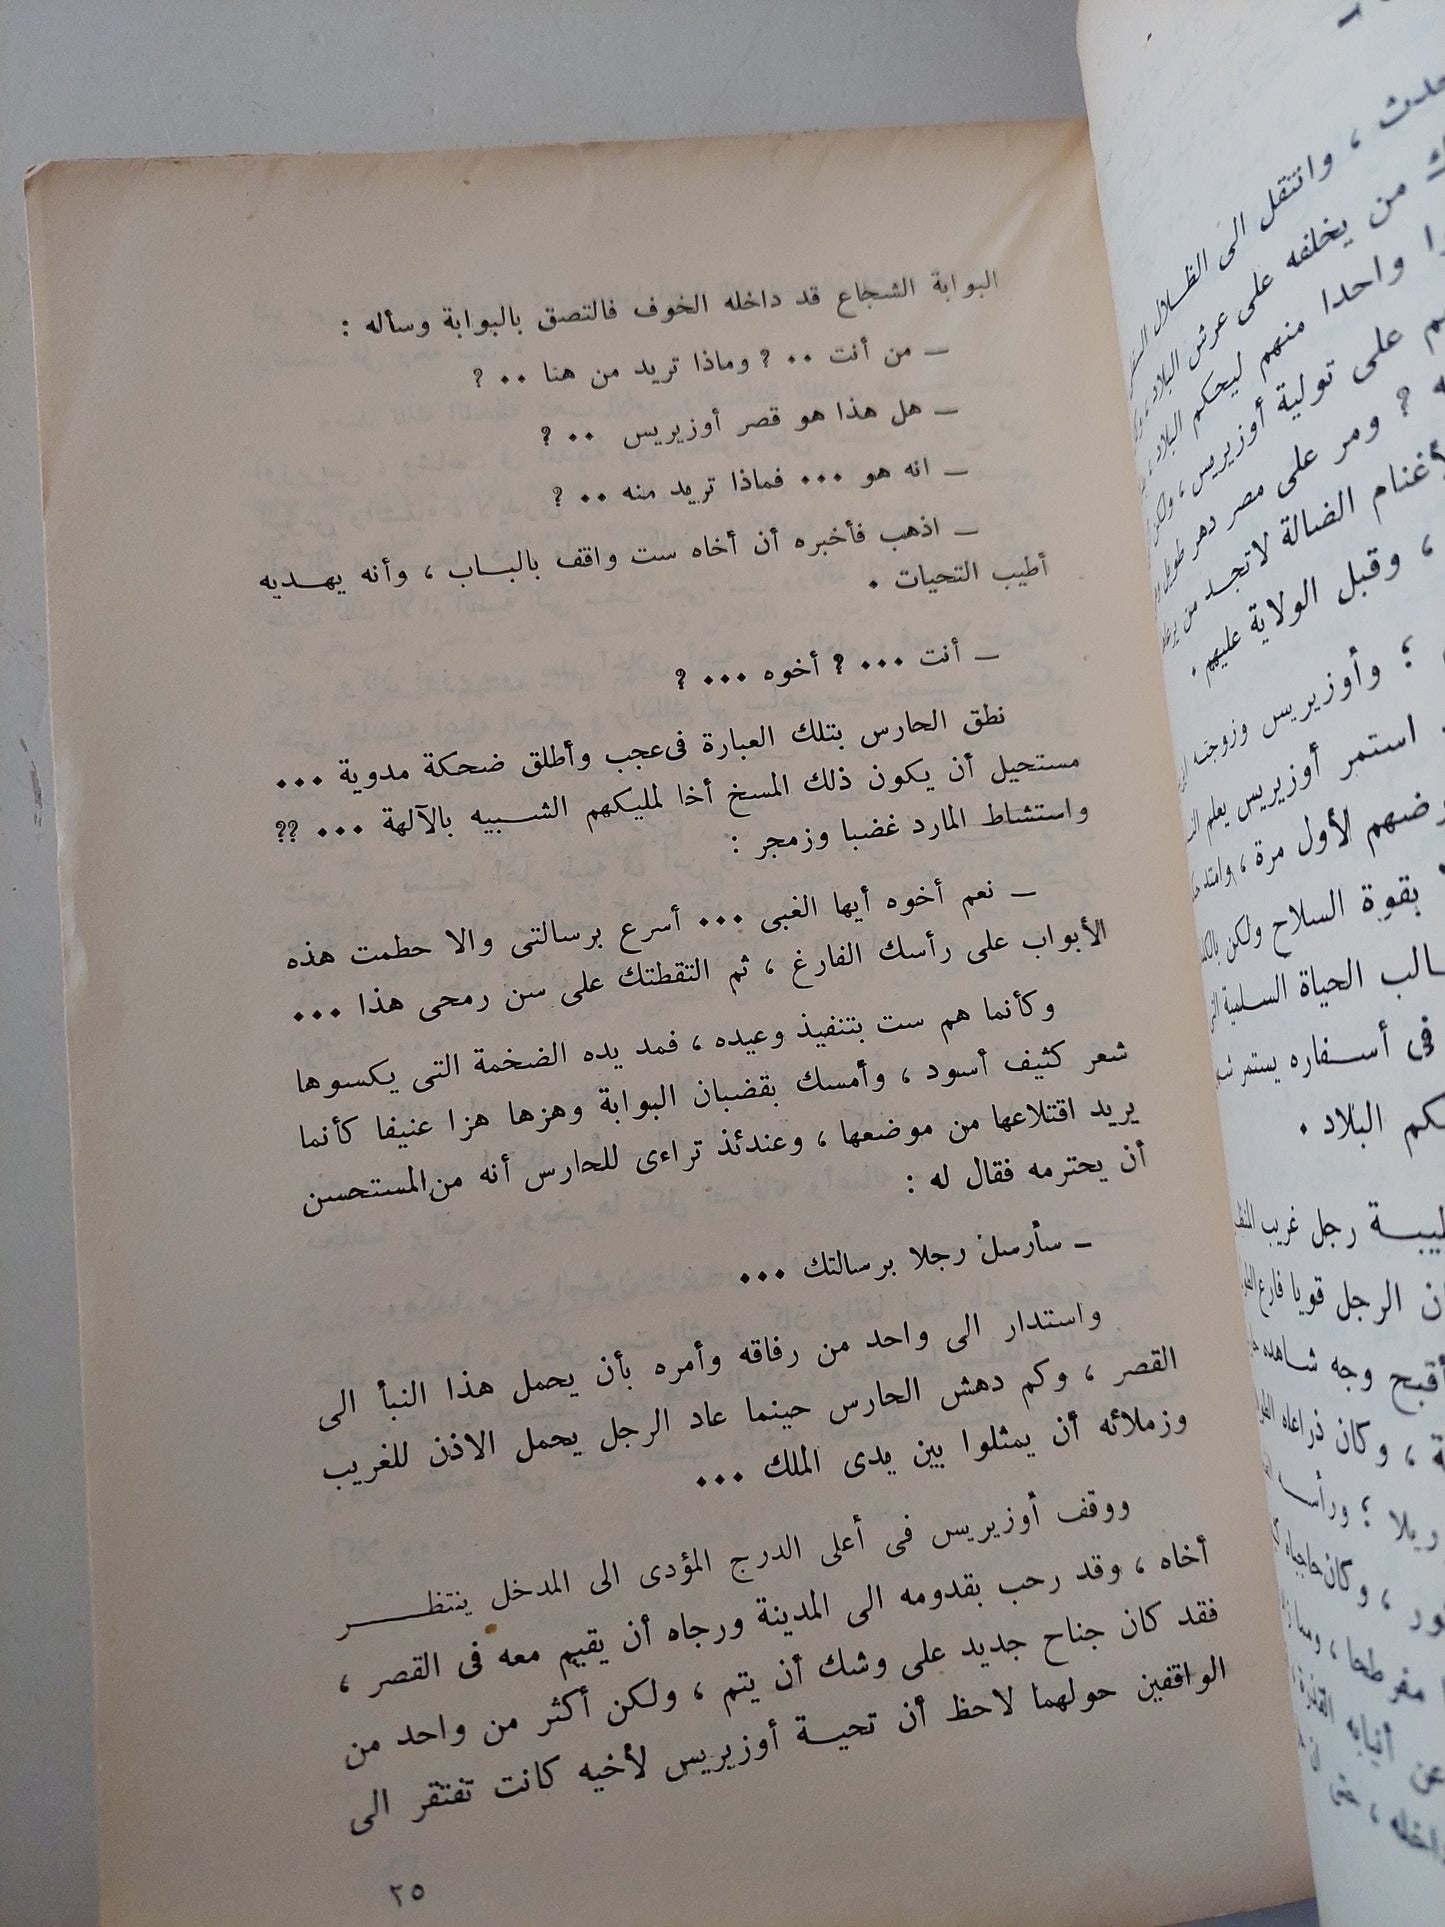 البوابة الشجاع قد داخله الخوف فالتصق بالبوابة وسأله :
ـ من أنت ٠٠ ? وماذا تريد من هنا ٠٠ ?
ـ هل هذا هو قصر أوزيريس ٠٠ ?
ـ انه هو ٠٠٠ فماذا تريد منه ٠٠ ?
ـ اذهب فأخبره أن أخاه ست واقف بالبــاب ، وأنه يهــديه
أطيب التحيات ٠
ـ أنت ٠٠٠ ? أخوه ٠٠٠ ?
نطق الحارس بتلك العبارة فى عجب وأطلق ضحكة مدوية ٠٠٠
مستحيل أن يكون ذلك المسخ أخا لمليكهم الشــبيه بالآلهة ٠٠٠ ??
واستشاط المارد غضبا وزمجر :
ـ نعم أخوه أيها الغبى ٠٠٠ أسرع برسالتى والا حطمت هذه
الأبواب على رأسك الفارغ ، ثم التقطتك على سن رمحى هذا ٠٠٠
وكأنما هم ست بتنفيذ وعيده ، فمد يده الضخمة التى يكسوها
شعر كثيف أسود ، وأمسك بقضبان البوابة وهزها هزا عنيفا كأنما
يريد اقتلاعها من موضعها ، وعندئذ تراءى للحارس أنه من المستحسن
أن يحترمه فقال له :
ـ سأرسل رجلا برسالتك ٠٠٠
واستدار الى واحد من رفاقه وأمره بأن يحمل هذا النبأ الى
القصر ، وكم دهش الحارس حينما عاد الرجل يحمل الاذن للغريب
وزملائه أن يمثلوا بين يدى الملك ٠٠٠
ووقف أوزيريس فى أعلى الدرج المؤدى الى المدخل ينتظــــر
أخاه ، وقد رحب بقدومه الى المدينة ورجاه أن يقيم معه فى القصر ،
فقد كان جناح جديد على وشك أن يتم ، ولكن أكثر من واحد من
الواقفين حولهما لاحظ أن تحيــة أوزيريس لأخيه كانت تفتقر الى
٢٥
، وانتقل الى الظــلال
من يخلفه على عرش البلاد
واحدا منهم ليحكم البلاد
على تولية أوزيريس ، ولكن
? ومر على مصر دهر طويل
الضالة لا تجــد من
، وقبل الولاية عليهم ٠
؛ وأوزيريس وزوجته
استمر أوزيريس يعلم
الأول مرة ، وامتد
بقوة السلاح ولكن
الحياة الســلمية
فى أســفاره يستمر
البلاد ٠
رجل غريب
الرجل قويا فارع
وجه شــاهده
، وكان ذراعاه
؛
، وكان حاجباه
مفرطحا ،
أنيابه